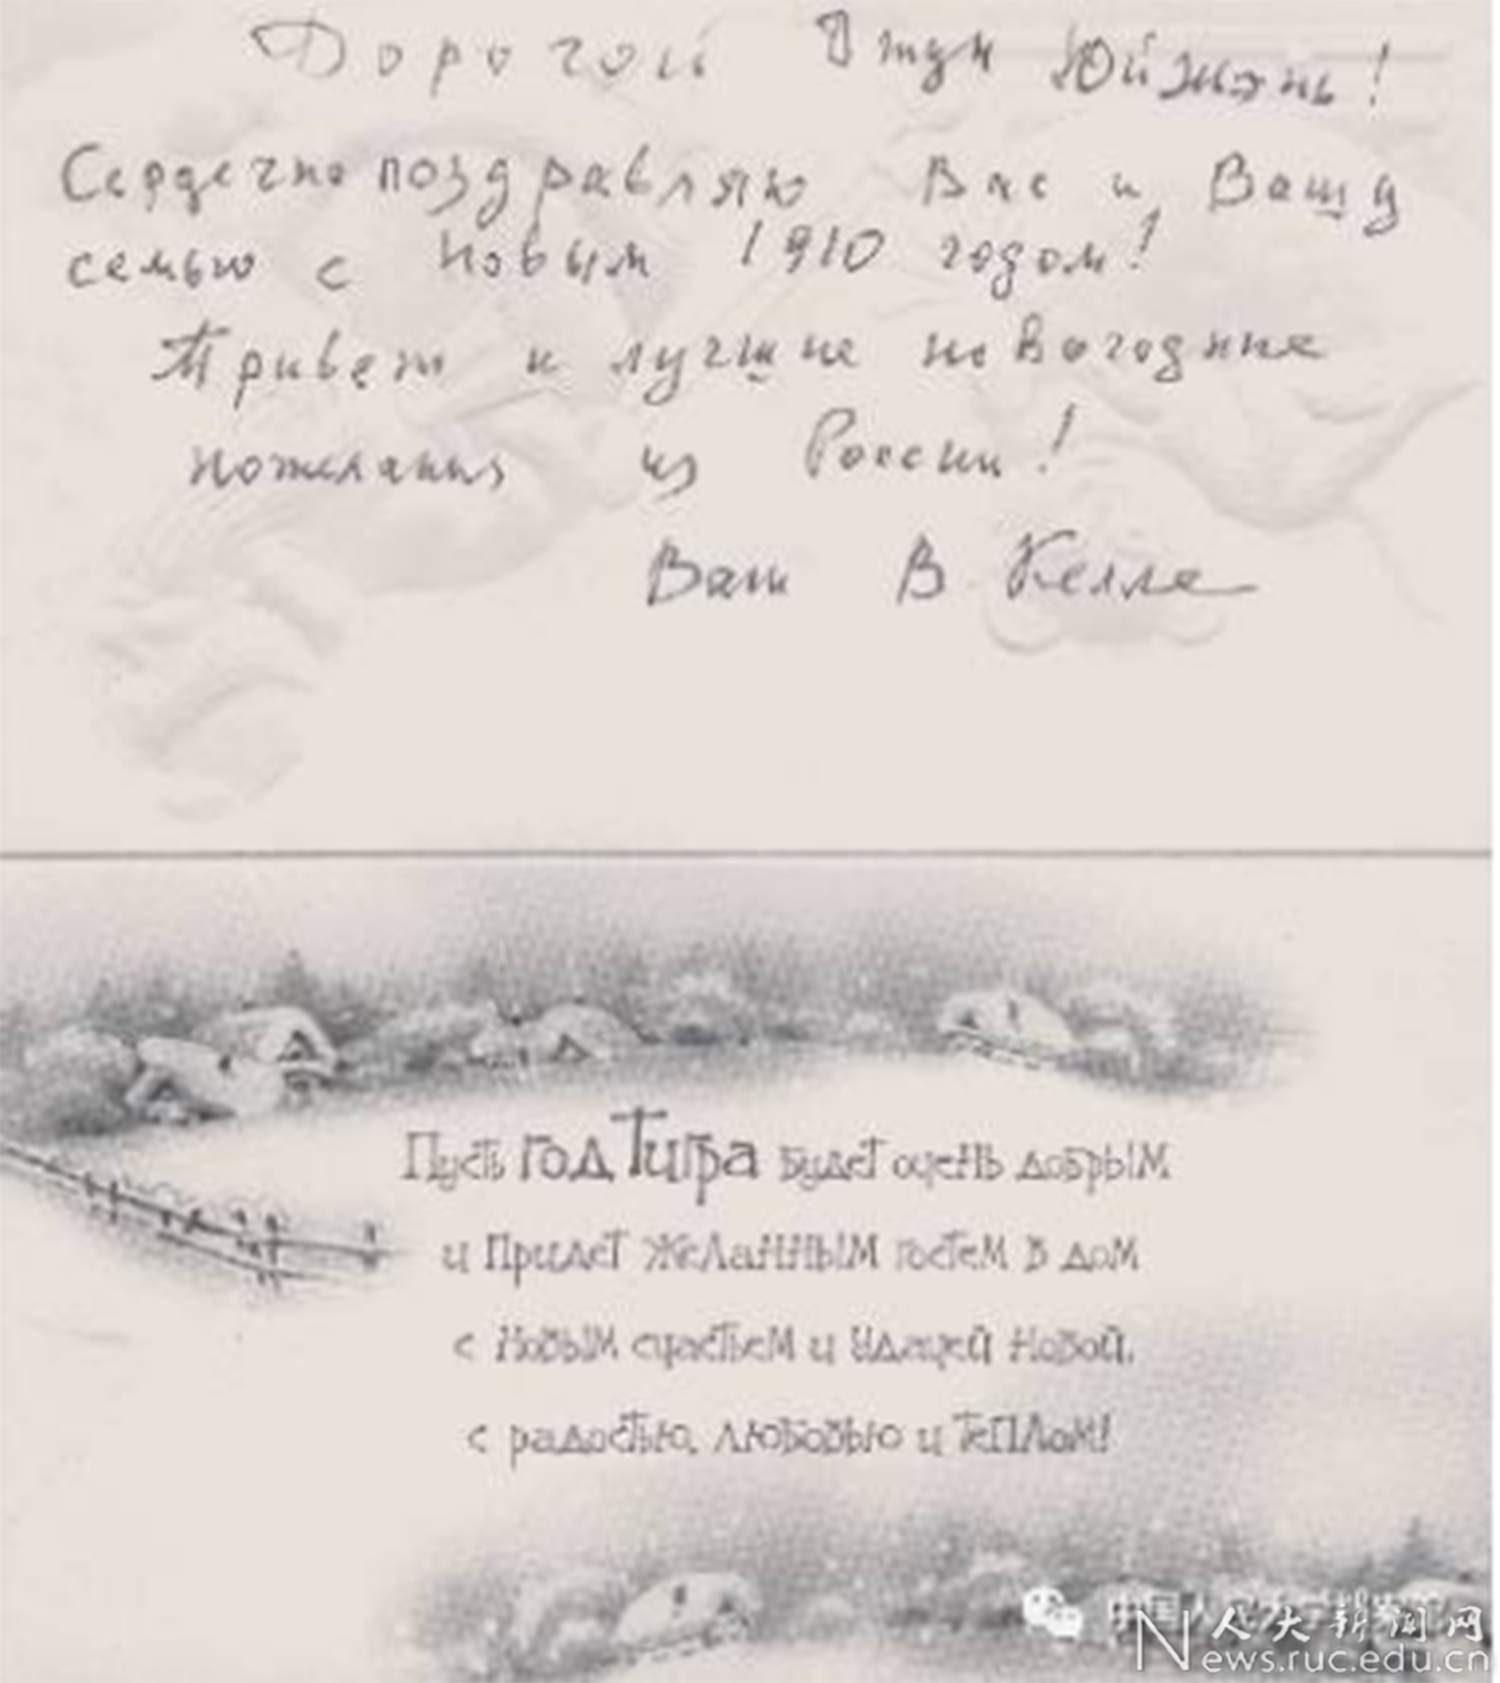 Дорогой Юйжэнь!
Сердечно поздравляю Вас и Вашу
семью с новым 1910 годом!
Привет и лучшие новогодние
пожелания из России!
Ваш В Келле
Пусть год Тигра будет очень добрым
и придет желанным гостем в дом
с новым счастьем и удачей новой,
с радостью, любовью и теплом!
人大新闻网
News.ruc.edu.cn